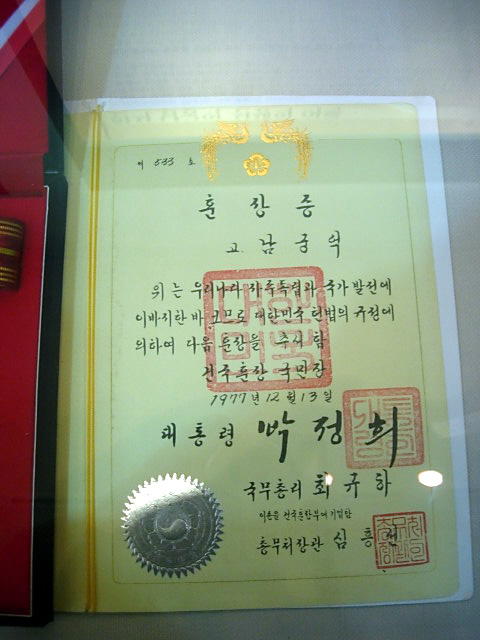 제 533 호
훈장증
고 남궁억
위는 우리나라 자주독립과 국가발전에
이바지한 바 크므로 대한민국 헌법의 규정에
의하여 다음 훈장을 추서함
건국훈장 국민장
1977년 12월 13일
대통령 박정희
국무총리 최규하
이 증을 건국훈장부에 기입함
총무처장관 심흥선